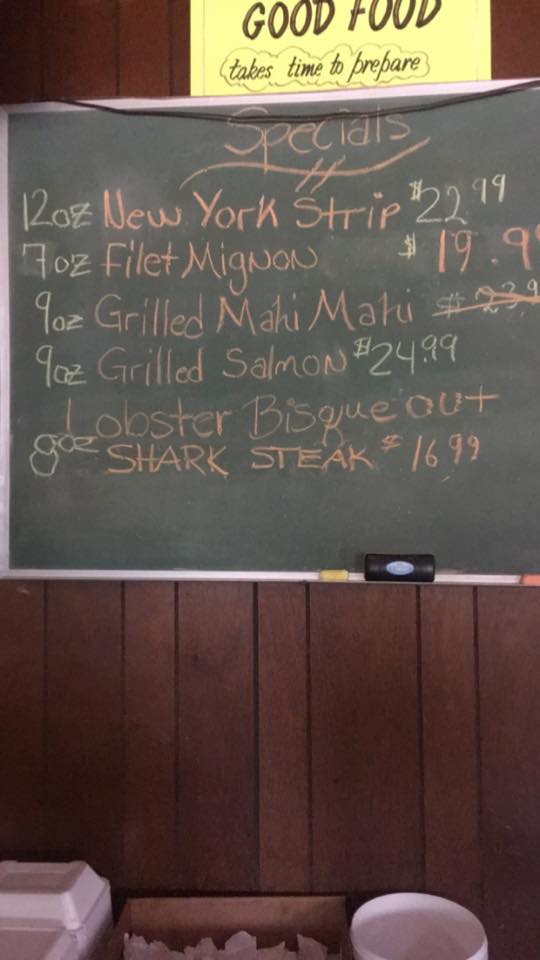 GOOD FOOD
takes time to prepare
Specials
12oz New York Strip $22.99
7oz Filet Mignon $19.99
9oz Grilled Mahi Mahi $23.9
9oz Grilled Salmon $24.99
Lobster Bisque out
8oz SHARK STEAK $16.99